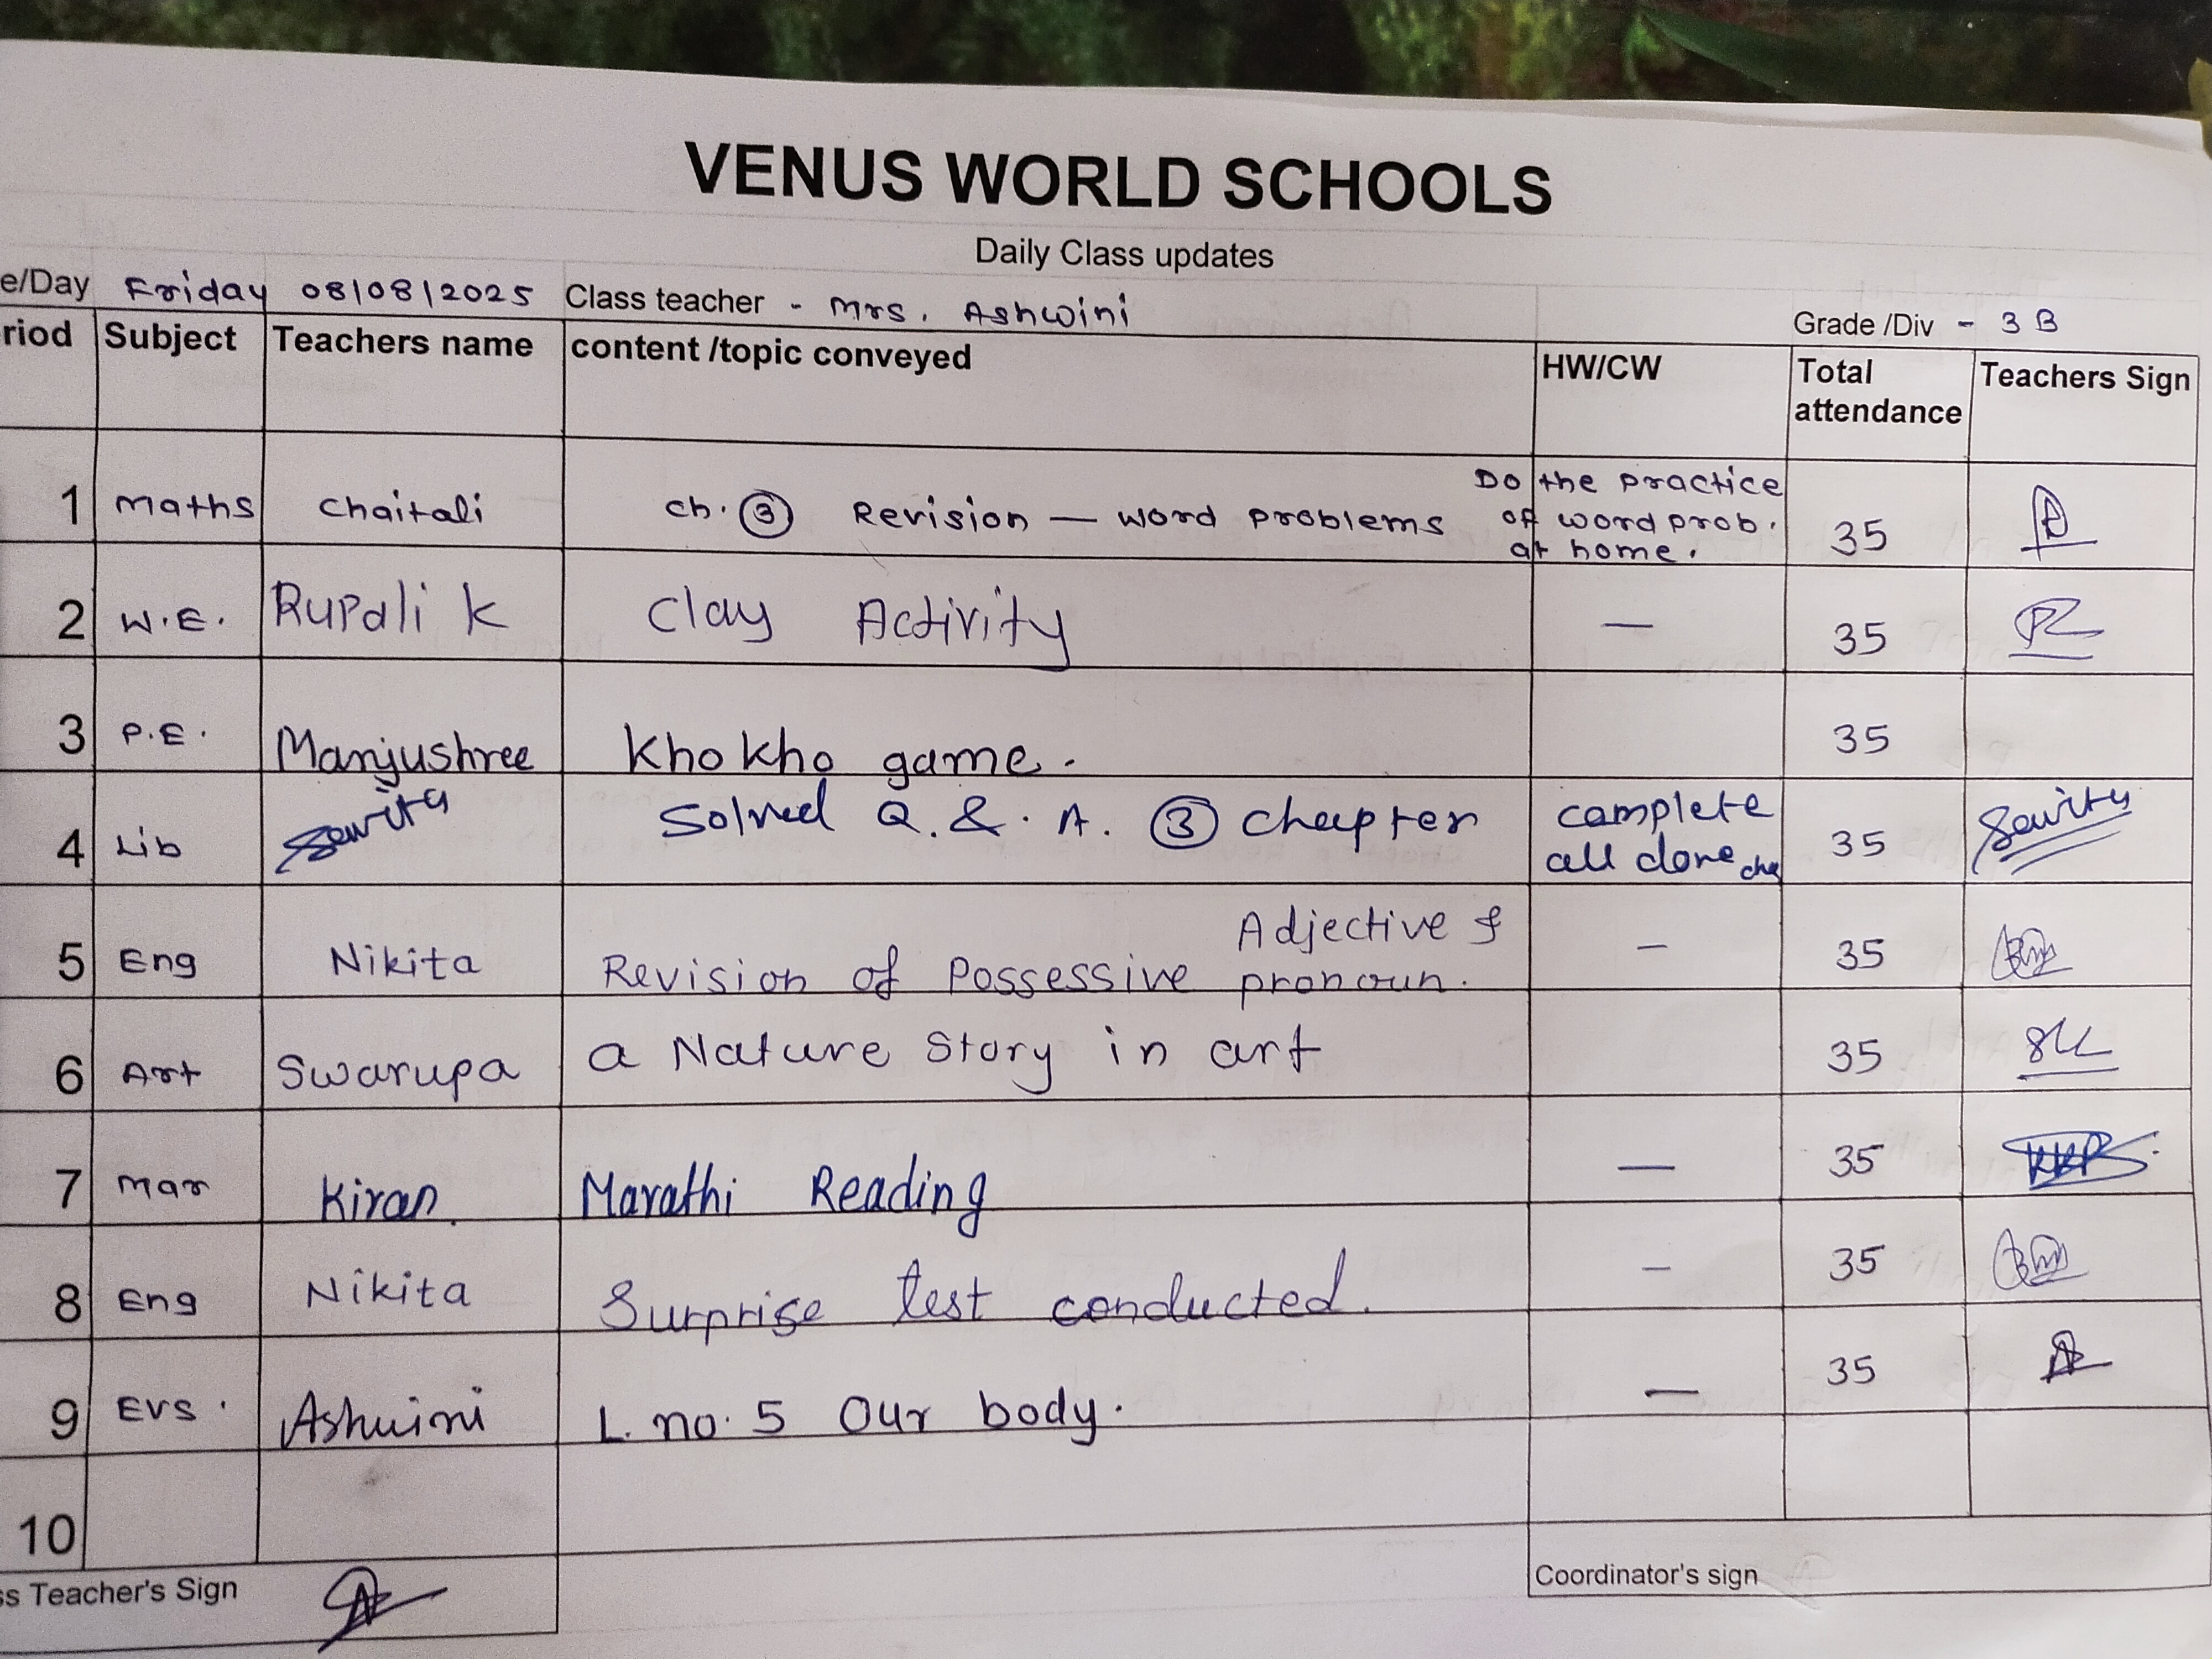 VENUS WORLD SCHOOLS
Daily Class updates
e/Day Friday 08/08/2025 Class teacher - Mrs. Ashwini Grade /Div - 3 B
riod Subject Teachers name content /topic conveyed HW/CW Total attendance Teachers Sign
1 Maths Chaitali ch. 3 Revision — word problems Do the practice of word prob. at home. 35
2 W.E. Rupali k Clay Activity — 35
3 P.E. Manjushree Kho kho game. 35
4 Lib Savita Solved Q. & A. 3 chapter complete all done 35 Savita
5 Eng Nikita Revision of Possessive Adjective & pronoun. — 35
6 Art Swarupa a Nature Story in art 35
7 Mar Kiran Marathi Reading — 35
8 Eng Nikita Surprise test conducted. — 35
9 EVS. Ashwini L. no. 5 Our body. — 35
10
ss Teacher's Sign Coordinator's sign